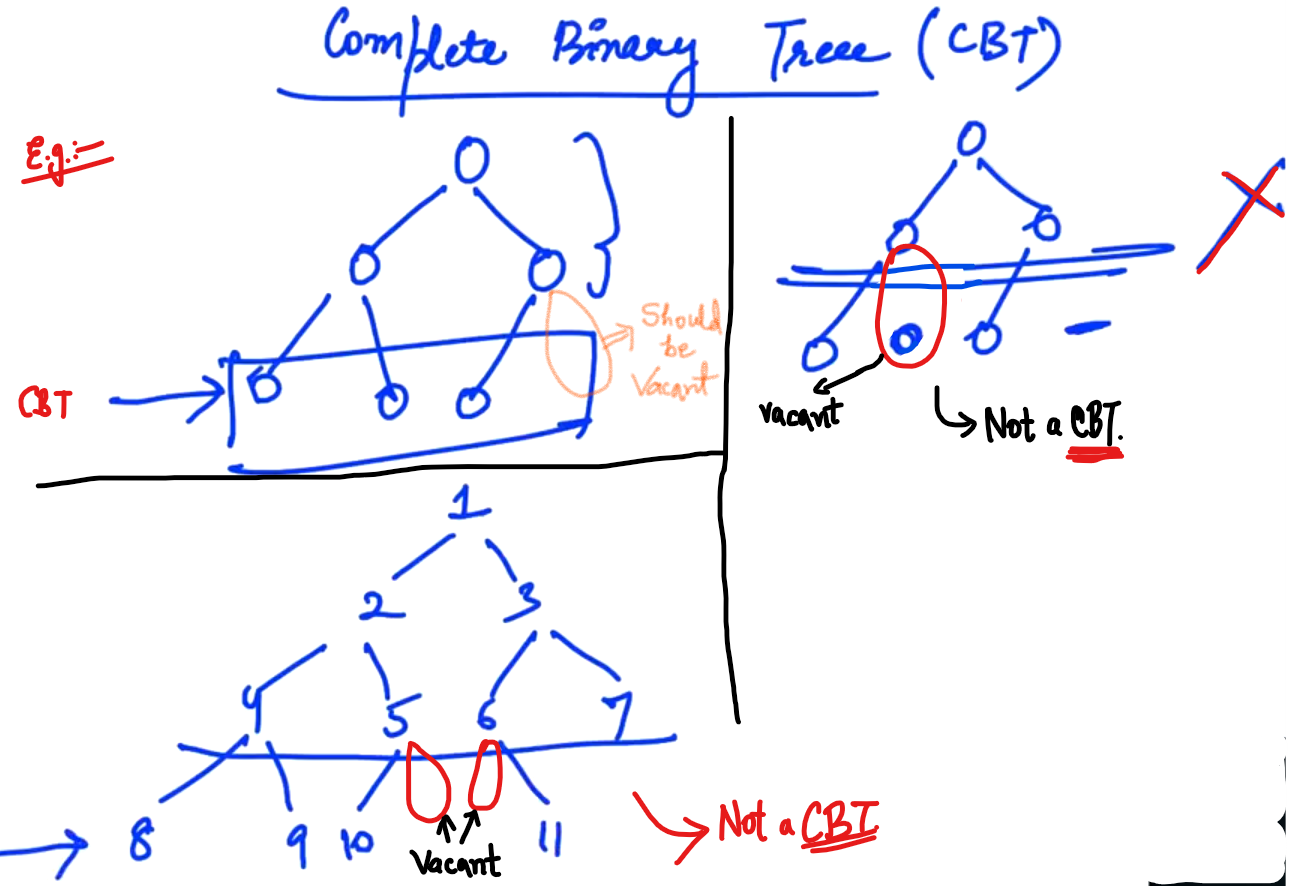 Complete Binary Treee (CBT)
E.g.:-
Should
be
Vacant
CBT
vacant
Not a CBT.
1
2 3
4 5 6 7
8 9 10 11
Vacant
Not a CBT